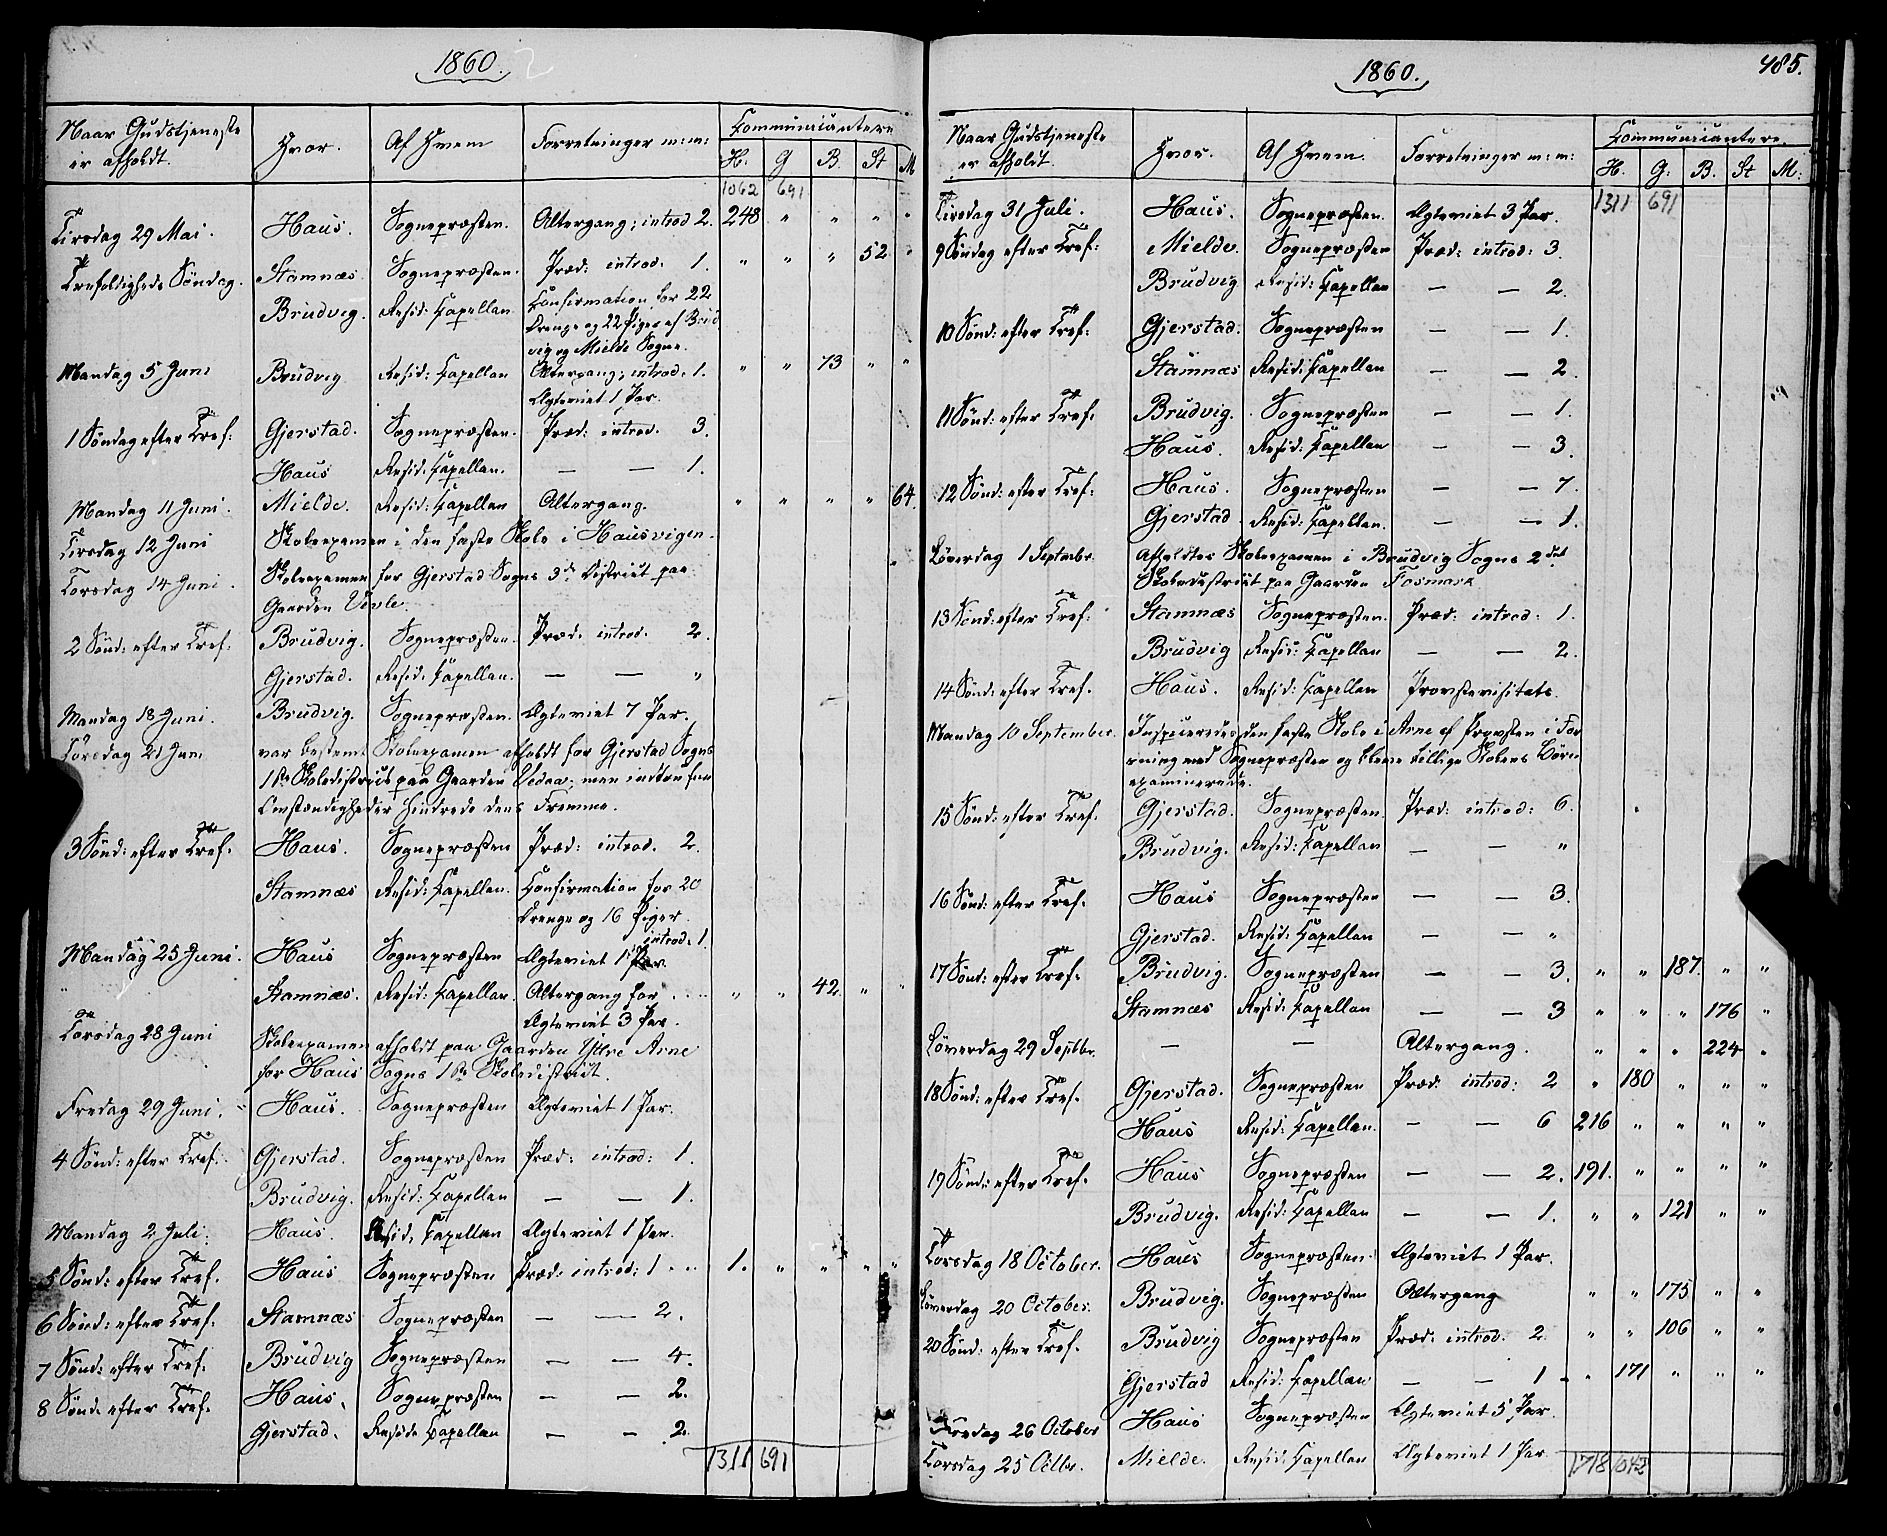 1860.
Naar Gudstjeneste er afholdt. Hvor. Af Hvem Forretninger m: m: Communicantere
H. G B. St M
1062 691
Tirsdag 29 Mai. Haus. Sognepræsten. Altergang; introd 2. 248 " " " "
Trefoldigheds Søndag. Stamnæs. Sognepræsten. Præd: introd. 1. " " " 52 "
Brudvig. Resid: Capellan Confirmation for 22
Drenge og 22 Piger af Brud
vig og Mielde Sogne.
Mandag 5 Juni Brudvig Resid: Capellan Altergang; introd. 1. " " 73 " "
Ægteviet 1 Par.
1 Søndag efter Tref: Gjerstad. Sognepræsten. Præd: introd. 3.
Haus Resid: Capellan. — — 1.
Mandag 11 Juni. Mielde. Resid: Capellan Altergang. " " " " 64.
Tirsdag 12 Juni Skoleexamen i den faste Skole i Hausvigen.
Torsdag 14 Juni. Skoleexamen for Gjerstad Sogns 3de District paa
Gaarden
2 Sønd: efter Tref: Brudvig. Sognepræsten. Præd. introd. 2.
Gjerstad. Resid: Capellan. — — "
Mandag 18 Juni. Brudvig. Sognepræsten. Ægteviet 7 Par.
Torsdag 21 Juni var bestemt Skoleexamen afholdt for Gjerstad Sogns
1ste Skoledistrict paa Gaarden men indtrufne
Omstændigheder hindrede dens Fremme.
3 Sønd: efter Tref. Haus. Sognepræsten Præd: introd. 2.
Stamnæs Resid: Capellan. Confirmation for 20
Drenge og 16 Piger.
introd. 1.
Mandag 25 Juni. Haus Sognepræsten Ægteviet 1 Par.
" Stamnæs. Resid: Capellan. Altergang for " " 42 " "
Ægteviet 3 Par.
Torsdag 28 Juni Skoleexamen afholdt paa Gaarden Yttre Arne
for Haus Sogns 1ste Skoledistrict.
Fredag 29 Juni. Haus. Sognepræsten Ægteviet 1 Par.
4 Sønd: efter Tref: Gjerstad. Sognepræsten Præd: introd: 1.
Brudvig. Resid: Capellan — — 1.
Mandag 2 Juli. Haus. Resid. Capellan Ægteviet 1 Par.
5 Sønd: efter Tref. Haus Sognepræsten Præd: introd: 1 1. " " " "
6 Sønd: efter Tref. Stamnæs Sognepræsten — — 2.
7 Sønd: efter Tref. Brudvig Sognepræsten — — 4.
8 Sønd: efter Tref. Haus. Sognepræsten — — 2.
Gjerstad. Resid: Capellan — — 2.
1311 691
1860. 485.
Naar Gudstjeneste er afholdt. Hvor. Af Hvem. Forretninger m: m: Communicantere.
H. G. B. St M.
1311 691
Tirsdag 31 Juli. Haus. Sognepræsten. Ægteviet 3 Par.
9 Søndag efter Tref: Mielde. Sognepræsten Præd: introd: 3.
Brudvig Resid: Capellan — — 2.
10 Sønd: efter Tref: Gjerstad. Sognepræsten — — 1.
Stamnæs Resid: Capellan — — 2.
11 Sønd: efter Tref. Brudvig. Sognepræsten — — 1.
Haus. Resid: Capellan — — 3.
12 Sønd: efter Tref: Haus. Sognepræsten — — 7.
Gjerstad. Resid: Capellan. — — 1.
Løverdag 1 Septembr. Afholdtes Skoleexamen i Brudvig Sogns 2det
Skoledistrict paa Gaarden Fosmark
13 Sønd: efter Tref: Stamnæs Sognepræsten. Præd: introd: 1.
Brudvig Resid: Capellan — — 2.
14 Sønd: efter Tref. Haus. Resid: Capellan Provstevisitats.
Mandag 10 September. Inspiceredes den faste Skole i Arne af Provsten i For
ening med Sognepræsten og bleve tillige Skolens Børn
examinerede.
15 Sønd: efter Tref. Gjerstad. Sognepræsten. Præd: introd: 6.
Brudvig. Resid: Capellan — — "
16 Sønd: efter Tref. Haus Sognepræsten — — 3.
Gjerstad. Resid: Capellan — — "
17 Sønd: efter Tref. Brudvig. Sognepræsten — — 3. " " 187. " "
Stamnæs Resid: Capellan — — 3 " " " 176 "
Løverdag 29 Septbr. — — Altergang. " " " 224 "
18 Sønd: efter Tref. Gjerstad. Sognepræsten Præd: introd: 2 " 180 " " "
Haus Resid: Capellan. — — 6 216 " " " "
19 Sønd: efter Tref. Haus Sognepræsten — — 2. 191. " " " "
Brudvig. Resid: Capellan — — 1. " " 121 " "
Torsdag 18 October. Haus Sognepræsten. Ægteviet 1 Par.
Løverdag 20 October. Brudvig. Sognepræsten Altergang " " 175 " "
20 Sønd: efter Tref. Brudvig Sognepræsten Præd: introd: 2. " " 106 " "
Gjerstad Resid: Capellan — — 1 " 171 " " "
Fredag 26 October Haus Sognepræsten Ægteviet 5 Par.
Torsdag 25 Octbr. Mielde. Resid: Capellan Ægteviet 1 Par.
1718 1042